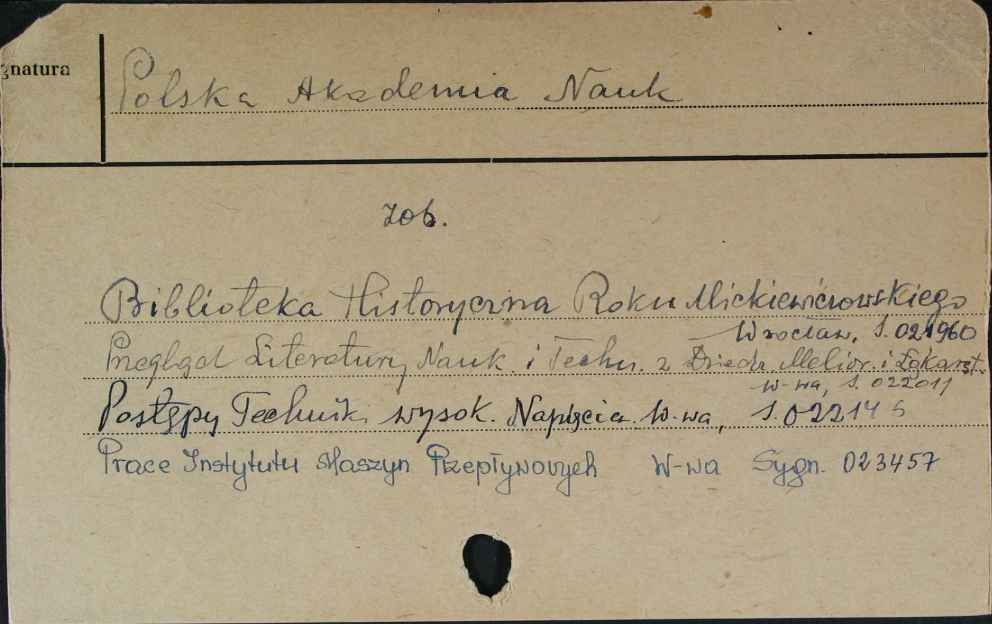 gnatura
Polska Akademia Nauk
zob.
Biblioteka Historyczna Roku Mickiewiczowskiego
Wrocław, S. 021960
Przegląd Literatury Nauk. i Techn. z Dziedz. Melior. i Łąkarst.
W-wa, S. 022011
Postępy Technik. wysok. Napięcia. W-wa, S. 022145
Prace Instytutu Maszyn Przepływowych W-wa Sygn. 023457